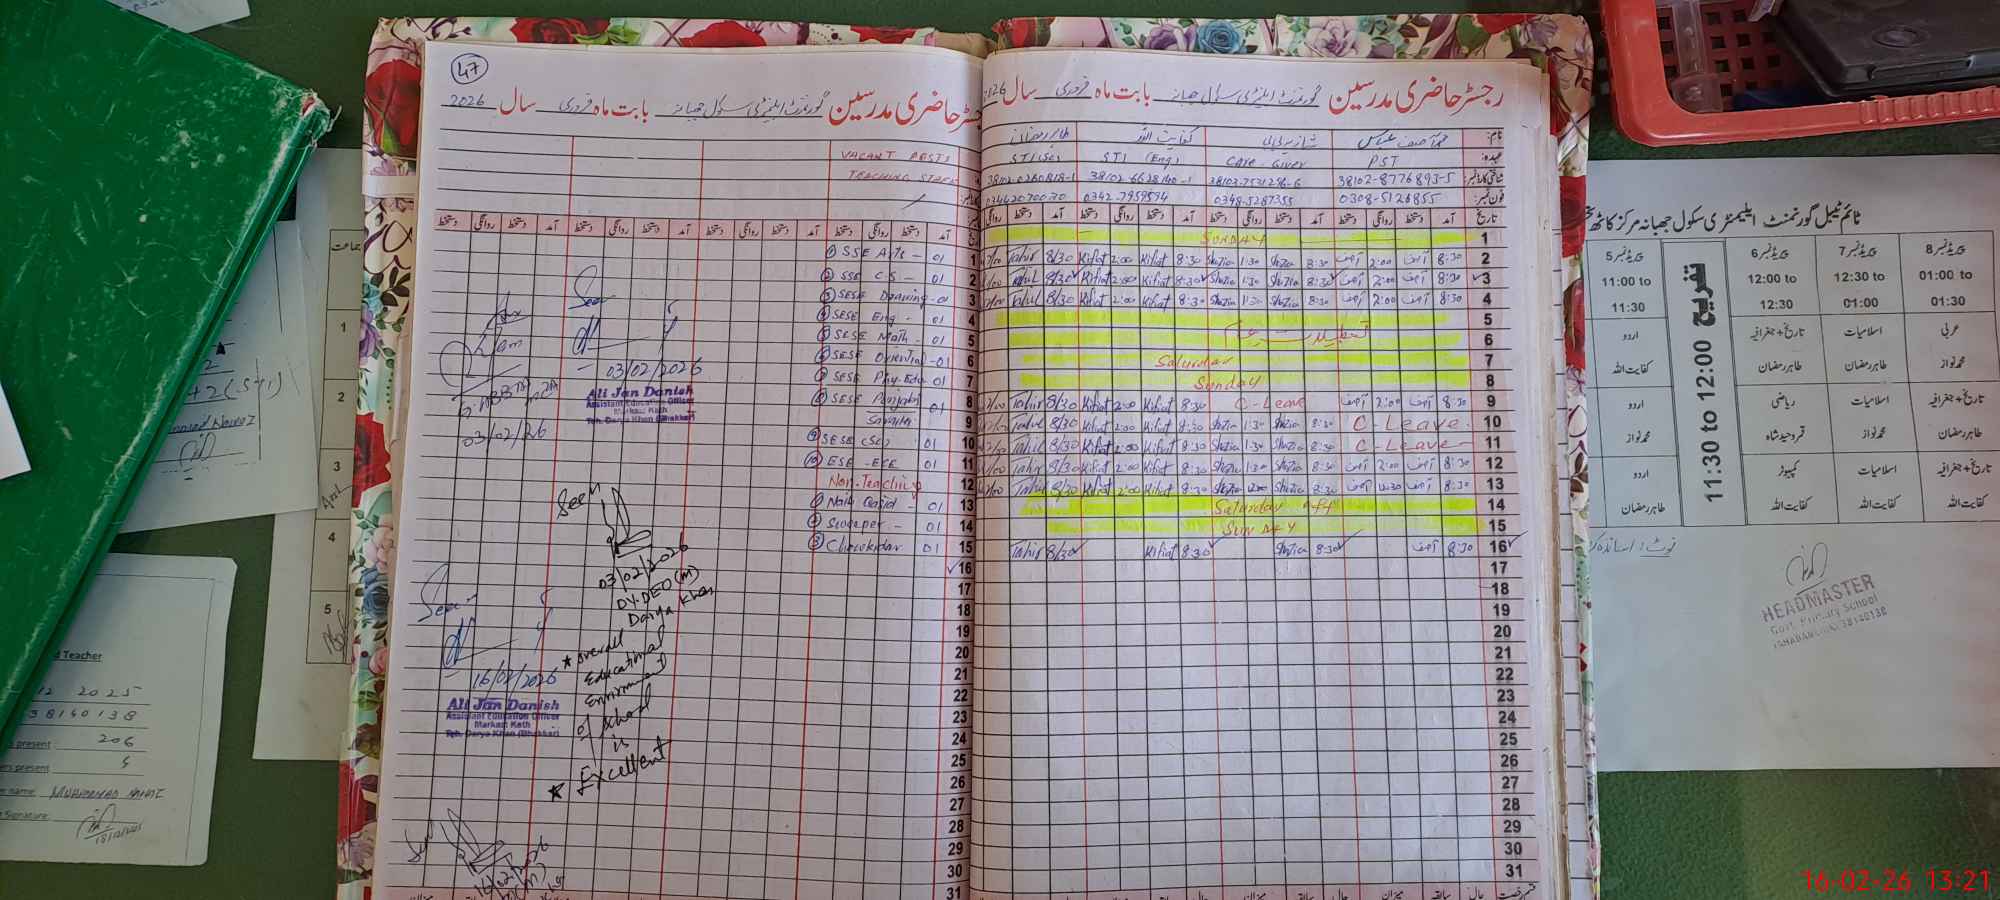 47
رجسٹر حاضری مدرسین گورنمنٹ ایلیمنٹری سکول جھبانہ بابت ماہ فروری سال 2026
VACANT POSTS
TEACHING STAFF
آمد دستخط روانگی دستخط آمد دستخط روانگی دستخط آمد دستخط روانگی دستخط
① SSE Arts - 01
② SSE C.S - 01
③ SESE Drawing - 01
④ SESE Eng - 01
⑤ SESE Math - 01
⑥ SESE Oriental - 01
⑦ SESE Phy-Edu 01
⑧ SESE Punjabi 01
⑨ SESE (Sci) 01
⑩ ESE - ECE 01
Non-Teaching
① Naib Qasid - 01
② Sweeper - 01
③ Chowkidar 01
1
2
3
4
5
6
7
8
9
10
11
12
13
14
15
16
17
18
19
20
21
22
23
24
25
26
27
28
29
30
31
03/02/2026
Ali Jan Danish
Assistant Education Officer
Markaz Kath
Teh. Darya Khan (Bhakkar)
03/02/26
Seen
03/02/2026
DY-DEO (M)
Darya Khan
* overall
Educational
Enviroment
of school
is
* Excellent
Seen
16/02/2026
Ali Jan Danish
Assistant Education Officer
Markaz Kath
Teh. Darya Khan (Bhakkar)
Seen
رجسٹر حاضری مدرسین گورنمنٹ ایلیمنٹری سکول جھبانہ بابت ماہ فروری سال 2026
نام: محمد آصف عباس شازیہ بی بی کفایت اللہ طاہر رمضان
عہدہ: PST Care-Giver STI (Eng) STI (Sci)
شناختی کارڈ نمبر: 38102-8776893-5 38102-7531296-6 38102-6628140-1 38102-0260818-1
فون نمبر: 0308-5126855 0348-5287355 0342-7959594 03462070070
تاریخ آمد دستخط روانگی دستخط آمد دستخط روانگی دستخط آمد دستخط روانگی دستخط آمد دستخط روانگی
1 SUNDAY
2 8:30 آصف 2:00 آصف 8:30 Shazia 1:30 Shazia 8:30 Kifiat 2:00 Kifiat 8/30 Tahir
3 8:30 آصف 2:00 آصف 8:30 Shazia 1:30 Shazia 8:30 Kifiat 2:00 Kifiat 8/30 Tahir
4 8:30 آصف 2:00 آصف 8:30 Shazia 1:30 Shazia 8:30 Kifiat 2:00 Kifiat 8/30 Tahir
5
6
7 Saturday
8 Sunday
9 8:30 آصف 2:00 آصف C-Leave 8:30 Kifiat 2:00 Kifiat 8/30 Tahir
10 C-Leave 8:30 Shazia 1:30 Shazia 8:30 Kifiat 2:00 Kifiat 8/30 Tahir
11 C-Leave 8:30 Shazia 1:30 Shazia 8:30 Kifiat 2:00 Kifiat 8/30 Tahir
12 8:30 آصف 2:00 آصف 8:30 Shazia 1:30 Shazia 8:30 Kifiat 2:00 Kifiat 8/30 Tahir
13 8:30 آصف 12:30 آصف 8:30 Shazia 12:00 Shazia 8:30 Kifiat 2:00 Kifiat 8/30 Tahir
14 Saturday off
15 SUNDAY
16 8:30 آصف 8:30 Shazia 8:30 Kifiat 8/30 Tahir
17
18
19
20
21
22
23
24
25
26
27
28
29
30
31
ٹائم ٹیبل گورنمنٹ ایلیمنٹری سکول جھبانہ مرکز کاٹھ
پیریڈ نمبر 8 پیریڈ نمبر 7 پیریڈ نمبر 6 پیریڈ نمبر 5
01:00 to 01:30 12:30 to 01:00 12:00 to 12:30 11:00 to 11:30
تفریح 11:30 to 12:00
عربی اسلامیات تاریخ+جغرافیہ اردو
محمد نواز طاہر رمضان طاہر رمضان کفایت اللہ
تاریخ+جغرافیہ اسلامیات ریاضی اردو
طاہر رمضان محمد نواز قمر وحید شاہ محمد نواز
تاریخ+جغرافیہ اسلامیات کمپیوٹر اردو
کفایت اللہ کفایت اللہ کفایت اللہ طاہر رمضان
HEADMASTER
Govt. Primary School
جماعت
1
2
3
4
5
d Teacher
12 2025
38140138
present: 206
present 5
name: MUHAMMAD NAWAZ
Signature:
16-02-26 13:21